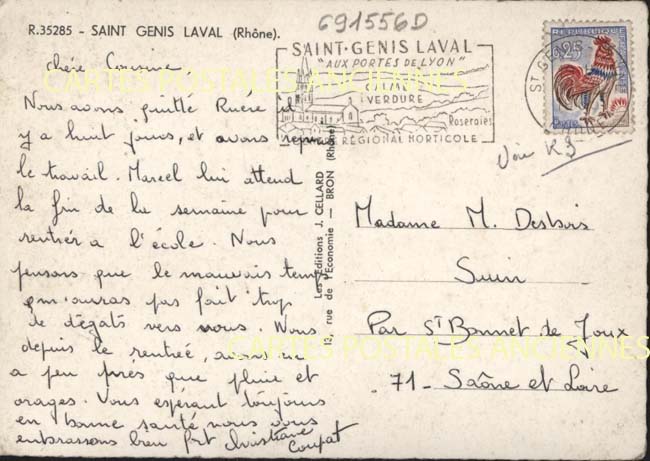 691556D
R.35285 - SAINT GENIS LAVAL (Rhône).
SAINT-GENIS LAVAL
"AUX PORTES DE LYON"
VERDURE
Roseraies
RÉGIONAL HORTICOLE
ST GE
0,25
Voir R5
CARTES POSTALES ANCIENNES
chère Cousine
Nous avons quitté Ruère il
y a huit jours, et avons repris
le travail. Marcel lui attend
la fin de la semaine pour
rentrer a l'école. Nous
pensons que le mauvais temps
n'auras pas fait trop
de dégats vers vous. Nous
depuis la rentrée, avons eu
a peu près que pluie et
orages. Vous espérant toujours
en bonne santé nous vous
embrassons bien fort Christiane
Coupat
Les Editions J. CELLARD
13, rue de l'Economie — BRON (Rhône)
Madame M. Desbois
Suin
Par St Bonnet de Joux
71 - Saône et Loire
CARTES POSTALES ANCIENNES